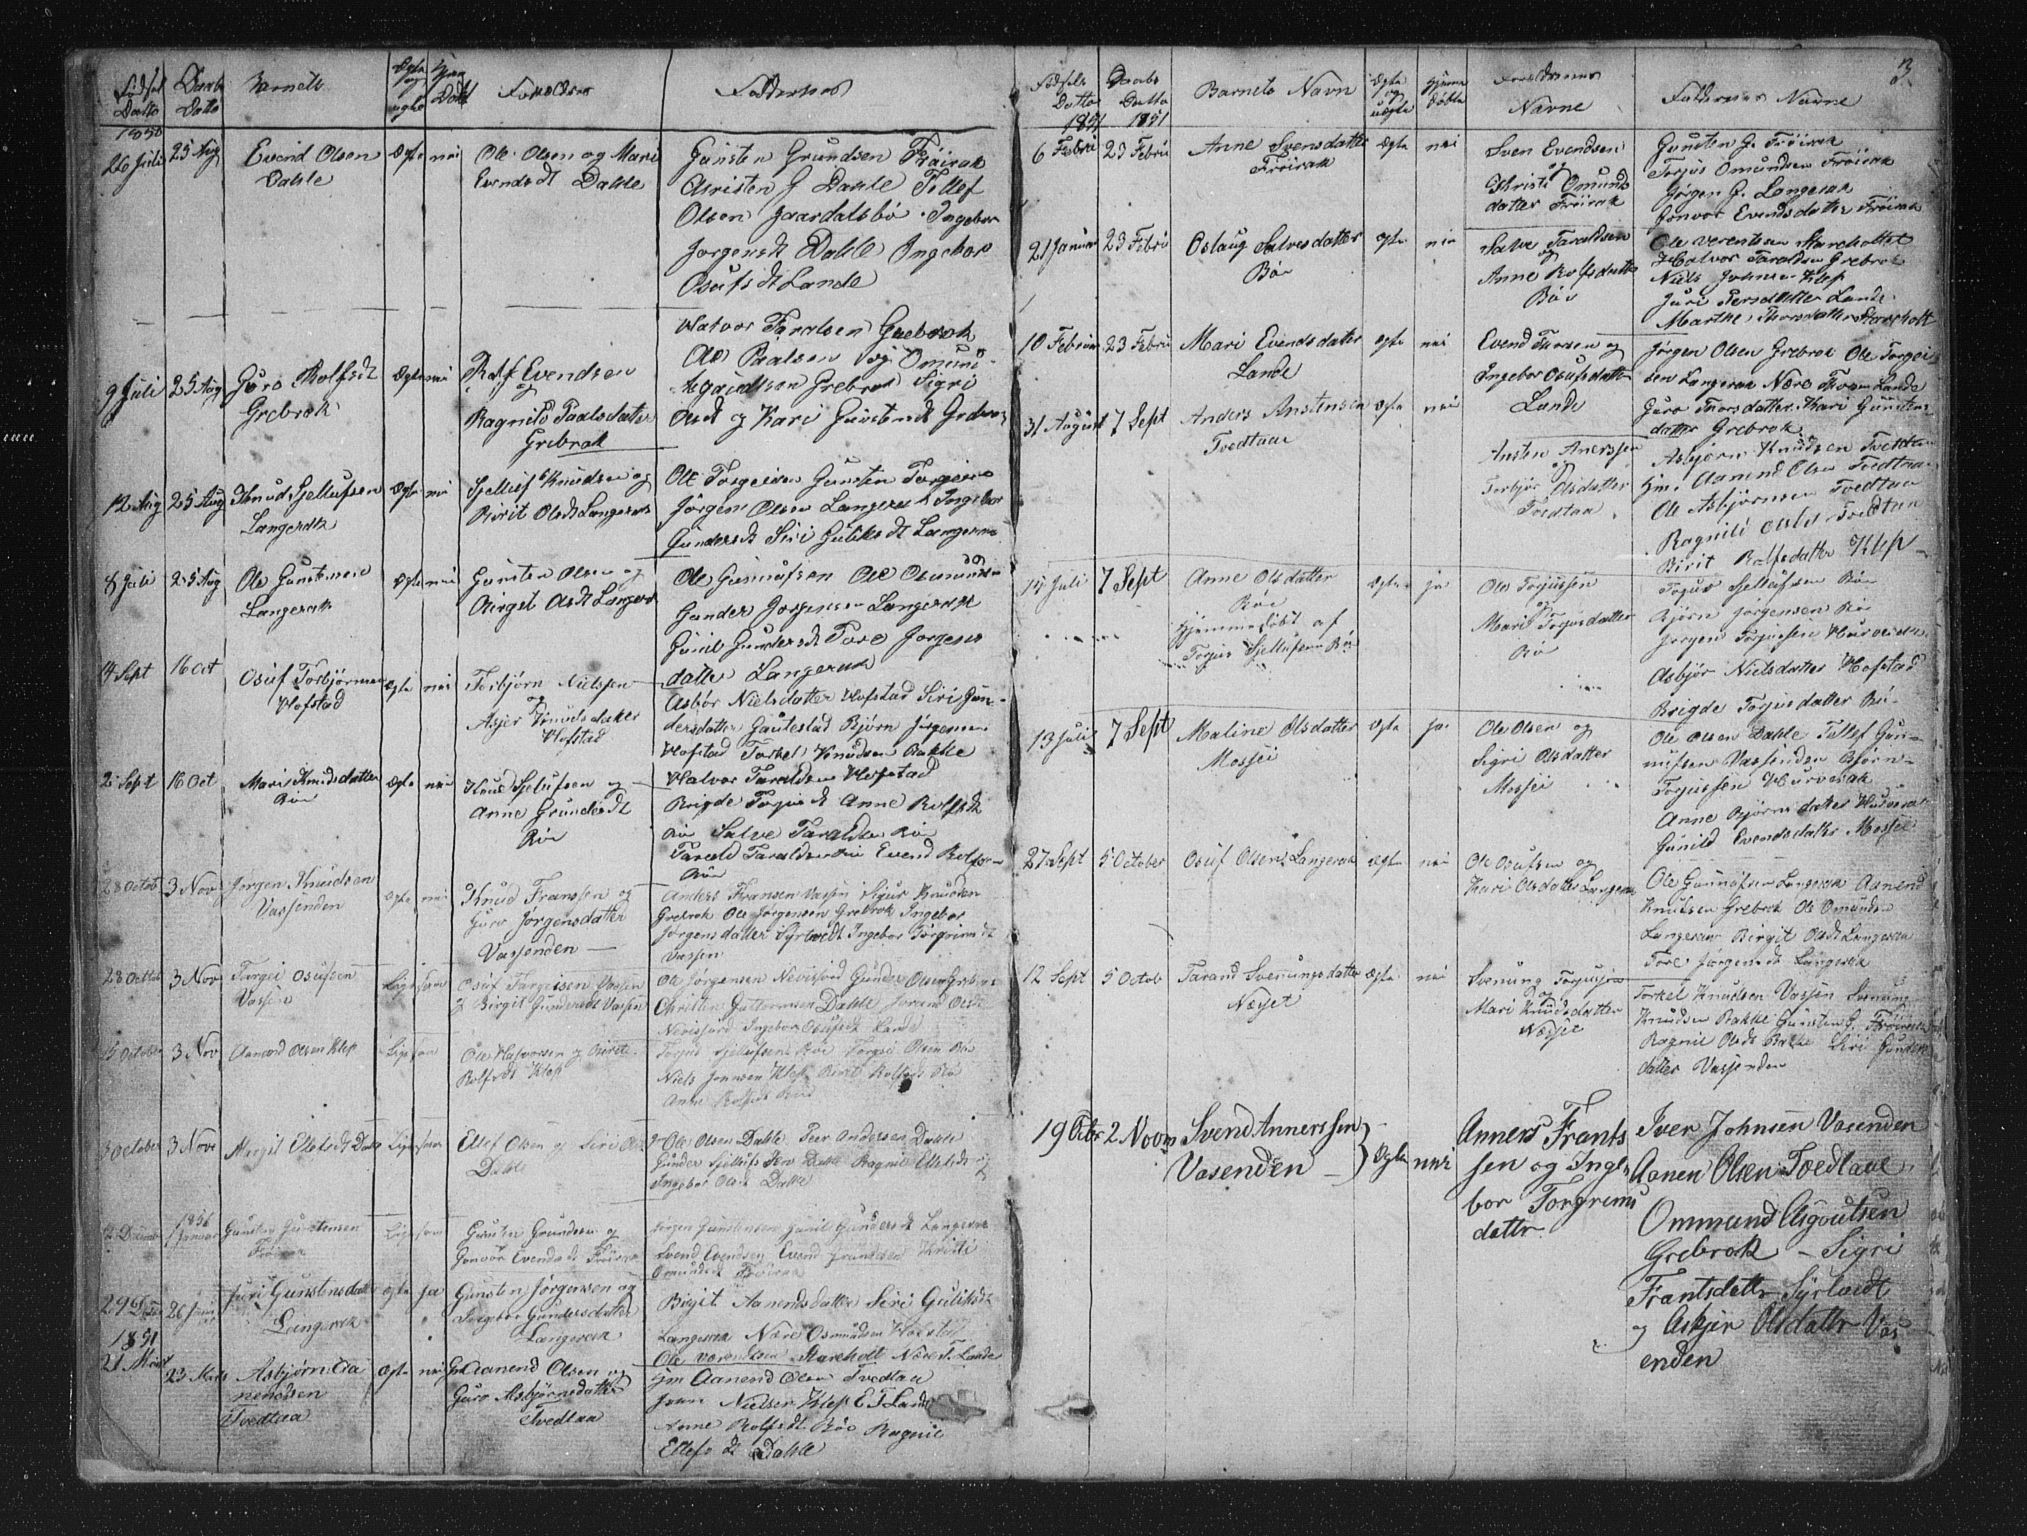 Fødsels Datto 1850
Daab Datto
Barnets
Ægte og uægte
Hjem Døbt
Forældre
Fadderne
26 Juli
25 Aug
Evend Olsen
Dahle
Ægte
nei
Ole Olsen og Mari
Evendsdt Dahle
Gunsten Grundsen Frøirak
Christen G Dahle Tellef
Olsen Gaardalsbø Ingebor
Jorgensdt Dahle Ingebor
Osufsdt Lande
9 Juli
25 Aug
Guro Rolfsdt
Grebrok
Ægte
nei
Rolf Evendsen
og
Ragnild Paalsdatter
Grebrok
Halvor Taralsen Grebrok
Ole Paalsen og Omund
Asgiudtsen Grebrok Sigri
Olsdt og Kari Gunstensdt Grebro
12 Aug
25 Aug
Knud Sjellufsen
Langerak
Ægte
nei
Sjelluf Knudsen og
Birit Olsdt Langerak
Ole Torgeisen Gunsten Torgeisn
Jørgen Olsen Langerak Ingebor
Gundersdt Siri Guliksdt Langerak
8 Juli
25 Aug
Ole Gunstensen
Langerak
Ægte
nei
Gunsten Olsen og
Birget Olsdt Langerak
Ole Gunnufsen Ole Osmundsen
Gunder Jorgensen Langerak
Gunil Gundersdt Tore Jorgens
datter Langerak
14 Sept
16 Oct
Osuf Torbjörnsen
Hofstad
Ægte
nei
Torbjørn Nielssen
og
Asjer Knudsdatter
Hofstad
Asbør Nielsdatter Hofstad Siri Gun-
dersdatter Gautestad Bjørn Jørgensen
Hofstad Torkel Knudsen Bakke
Halvor Taraldsen Hofstad
2 Sept
16 Oct
Mari Knudsdatter
Bøe
Ægte
nei
Knud Sjelufsen og
Anne Grundesdt
Bøe
Brigde Torjusdt Anne Rolfsdt
Bøe Salve Taraldsen Bøe
Tarald Taraldsen Bøe Evend Rolfsen
Bøe
28 Octob
3 Nov
Jörgen Knudsen
Vassenden
Ægte
nei
Knud Franssen og
Guro Jørgensdatter
Vassenden
Anders Fransen Vassen Sigur Knudsen
Grebrok Ole Jørgensen Grebrok Ingebor
Jørgensdatter Syrtvedt Ingebor Torgrimsdt
Vassen
28 Octob
3 Nov
Torgei Osufsen
Vassen
Ligesom
Osuf Torgeissen Vassen
og Birgit Gundersdt Vassen
Ole Jørgensen Nevisfjord Gunder Olsen Grebrok
Christen Guttormsen Dahle Jorand Olsdt
Nevisfjord Ingebor Osufsdt Lande
October
3 Nov
Aanond Olsen Klep
Ligesom
Ole Halvorsen og Birit
Rolfsdt Klep
Torjus Sjellufsen Bøe Torgei Olsen Bøe
Niels Jonnsen Klep Birit Rolfsdt Bøe
Anne Rolfsdt Bøe
October
3 Nove
Margit Ellefsdt Dahle
Ligesom
Ellef Olsen og Siri Ols
Dahle
Ole Olsen Dahle Peer Andersen Dahle
Gunder Sjellufssen Dahle Ragnil Ellefsdt
Ingebor Olsdt Dahle
Decemb
1851
1 Januar
Gunsten Gunstensen
Frøirak
Ligesom
Gunsten Grundsen og
Gonvor Evendsdt Frøirak
Jørgen Gunstensen Gunil Gundersdt Langerak
Svend Evendsen Evend Grundsen Kristi
Omundsdt Frøirak
29 Dece
26 Januar
Juri Gunstensdat
Langerak
Ægte
ja
Gunsten Jørgensen og
Ingebor Gundersdatter
Langerak
Birgit Aanendsdatter Siri Guliksdt
Langerak Næri Osmundsen Hofstad
Ole Verendsen Stareholt Næri T. Lande
1851
21 Mart
23 Mats
Asbjørn Aa
nendsen
Tvedtaa
Ægte
nei
Gm Aanend Olsen og
Guro Asbjørnsdatter
Tvedtaa
Gm Aanend Olsen Tvedtaa
Jonn Nielsen Klep E T Lande
Anne Rolfsdt Bøe Ragnil
Ellefsdt Dahle
3
Fødsels Datto 1851
Daabs Datto 1851
Barnets Navn
Ægte og uægte
Hjemme døbte
Forældrenes
Navne
Faddernes Navne
6 Febru
23 Febru
Anne Svensdatter
Frøirak
Ægte
nei
Sven Evendsen
og
Kristi Omunds
datter Frøirak
Gunsten G. Frøirak
Torjus Omundsen Frøirak
Jørgen G. Langerak
Gonvor Evendsdatter Frøirak
21 Januar
23 Febru
Oslaug Salvesdatter
Bøe
Ægte
nei
Salve Taraldsen
og
Anne Rolfsdatter
Bøe
Ole Verentsen Stareholtet
Halvor Taraldsen Grebrok
Niels Johnsen Klep
Juri Persdatter Lande
Marthe Thorsdatter Stareholt
10 Februar
23 Febru
Mari Evendsdatter
Lande
Ægte
nei
Evend Thorsen og
Ingebor Osufsdatter
Lande
Jørgen Olsen Grebrok Ole Torgei
sen Langerak Næri Thorsen Lande
Guro Thorsdatter Kari Gunstens
datter Grebrok
31 August
7 Sept
Anders Anstensen
Tvedtaa
Ægte
nei
Ansten Anerssen
og
Torbjør Olsdatter
Tvedtaa
Asbjørn Knudsen Tvedtaa
Gm. Aanend Olsen Tvedtaa
Ole Asbjørnsen Tvedtaa
Ragnild Olsdt Tvedtaa
Birit Rolfsdatter Klep
14 Juli
7 Sept
Anne Olsdatter
Bøe
Hjemmedøbt af
Torjus Sjellufsen Bøe
Ægte
ja
Ole Torjussen
og
Mari Torjusdatter
Bøe
Torjus Sjellufsen Bøe
Bjørn Jörgensen Bøe
Jorgen Torjussen Hurverak
Asbjør Nielsdatter Hofstad
Brigde Torjusdatter Bøe
13 Juli
7 Sept
Maline Olsdatter
Mossei
Ægte
ja
Ole Olsen og
Sigri Olsdatter
Mossei
Ole Olsen Dahle Tellef Gun-
nufsen Vassenden Bjørn
Torjussen Hurverak
Anne Bjørnsdatter Hurverak
Gunild Evendsdatter Mossei
27 Sept
5 October
Osuf Olsen Langerak
Ægte
nei
Ole Osufsen og
Kari Olsdatter Langerak
Ole Gunnufsen Langerak Aanend
Knutsen Grebrok Ole Omundsen
Langerak Birgit Olsdt Langerak
Tore Jørgensdt Langerak
12 Sept
5 Octob
Tarand Svenungsdatter
Næset
Ægte
nei
Svenung Torjusen
og
Mari Knudsdatter
Næsse
Torkel Knudsen Vassen Svenung
Knudsen Bakke Gunsten G. Frøirak
Ragnil Olsdt Bakke Siri Gunders
datter Vassenden
19 Octbr
2 Novm
Svend Annerssen
Vasenden
Ægte
nei
Anners Frants
sen og Inge-
bor Torgrims
datter
Iver Johnsen Vasenden
Aanen Olsen Tvedtaae
Ommund Asgoutsen
Grebrok - Sigri
Frantsdattr Syrtvedt
og Askjer Olsdattr Vas
enden